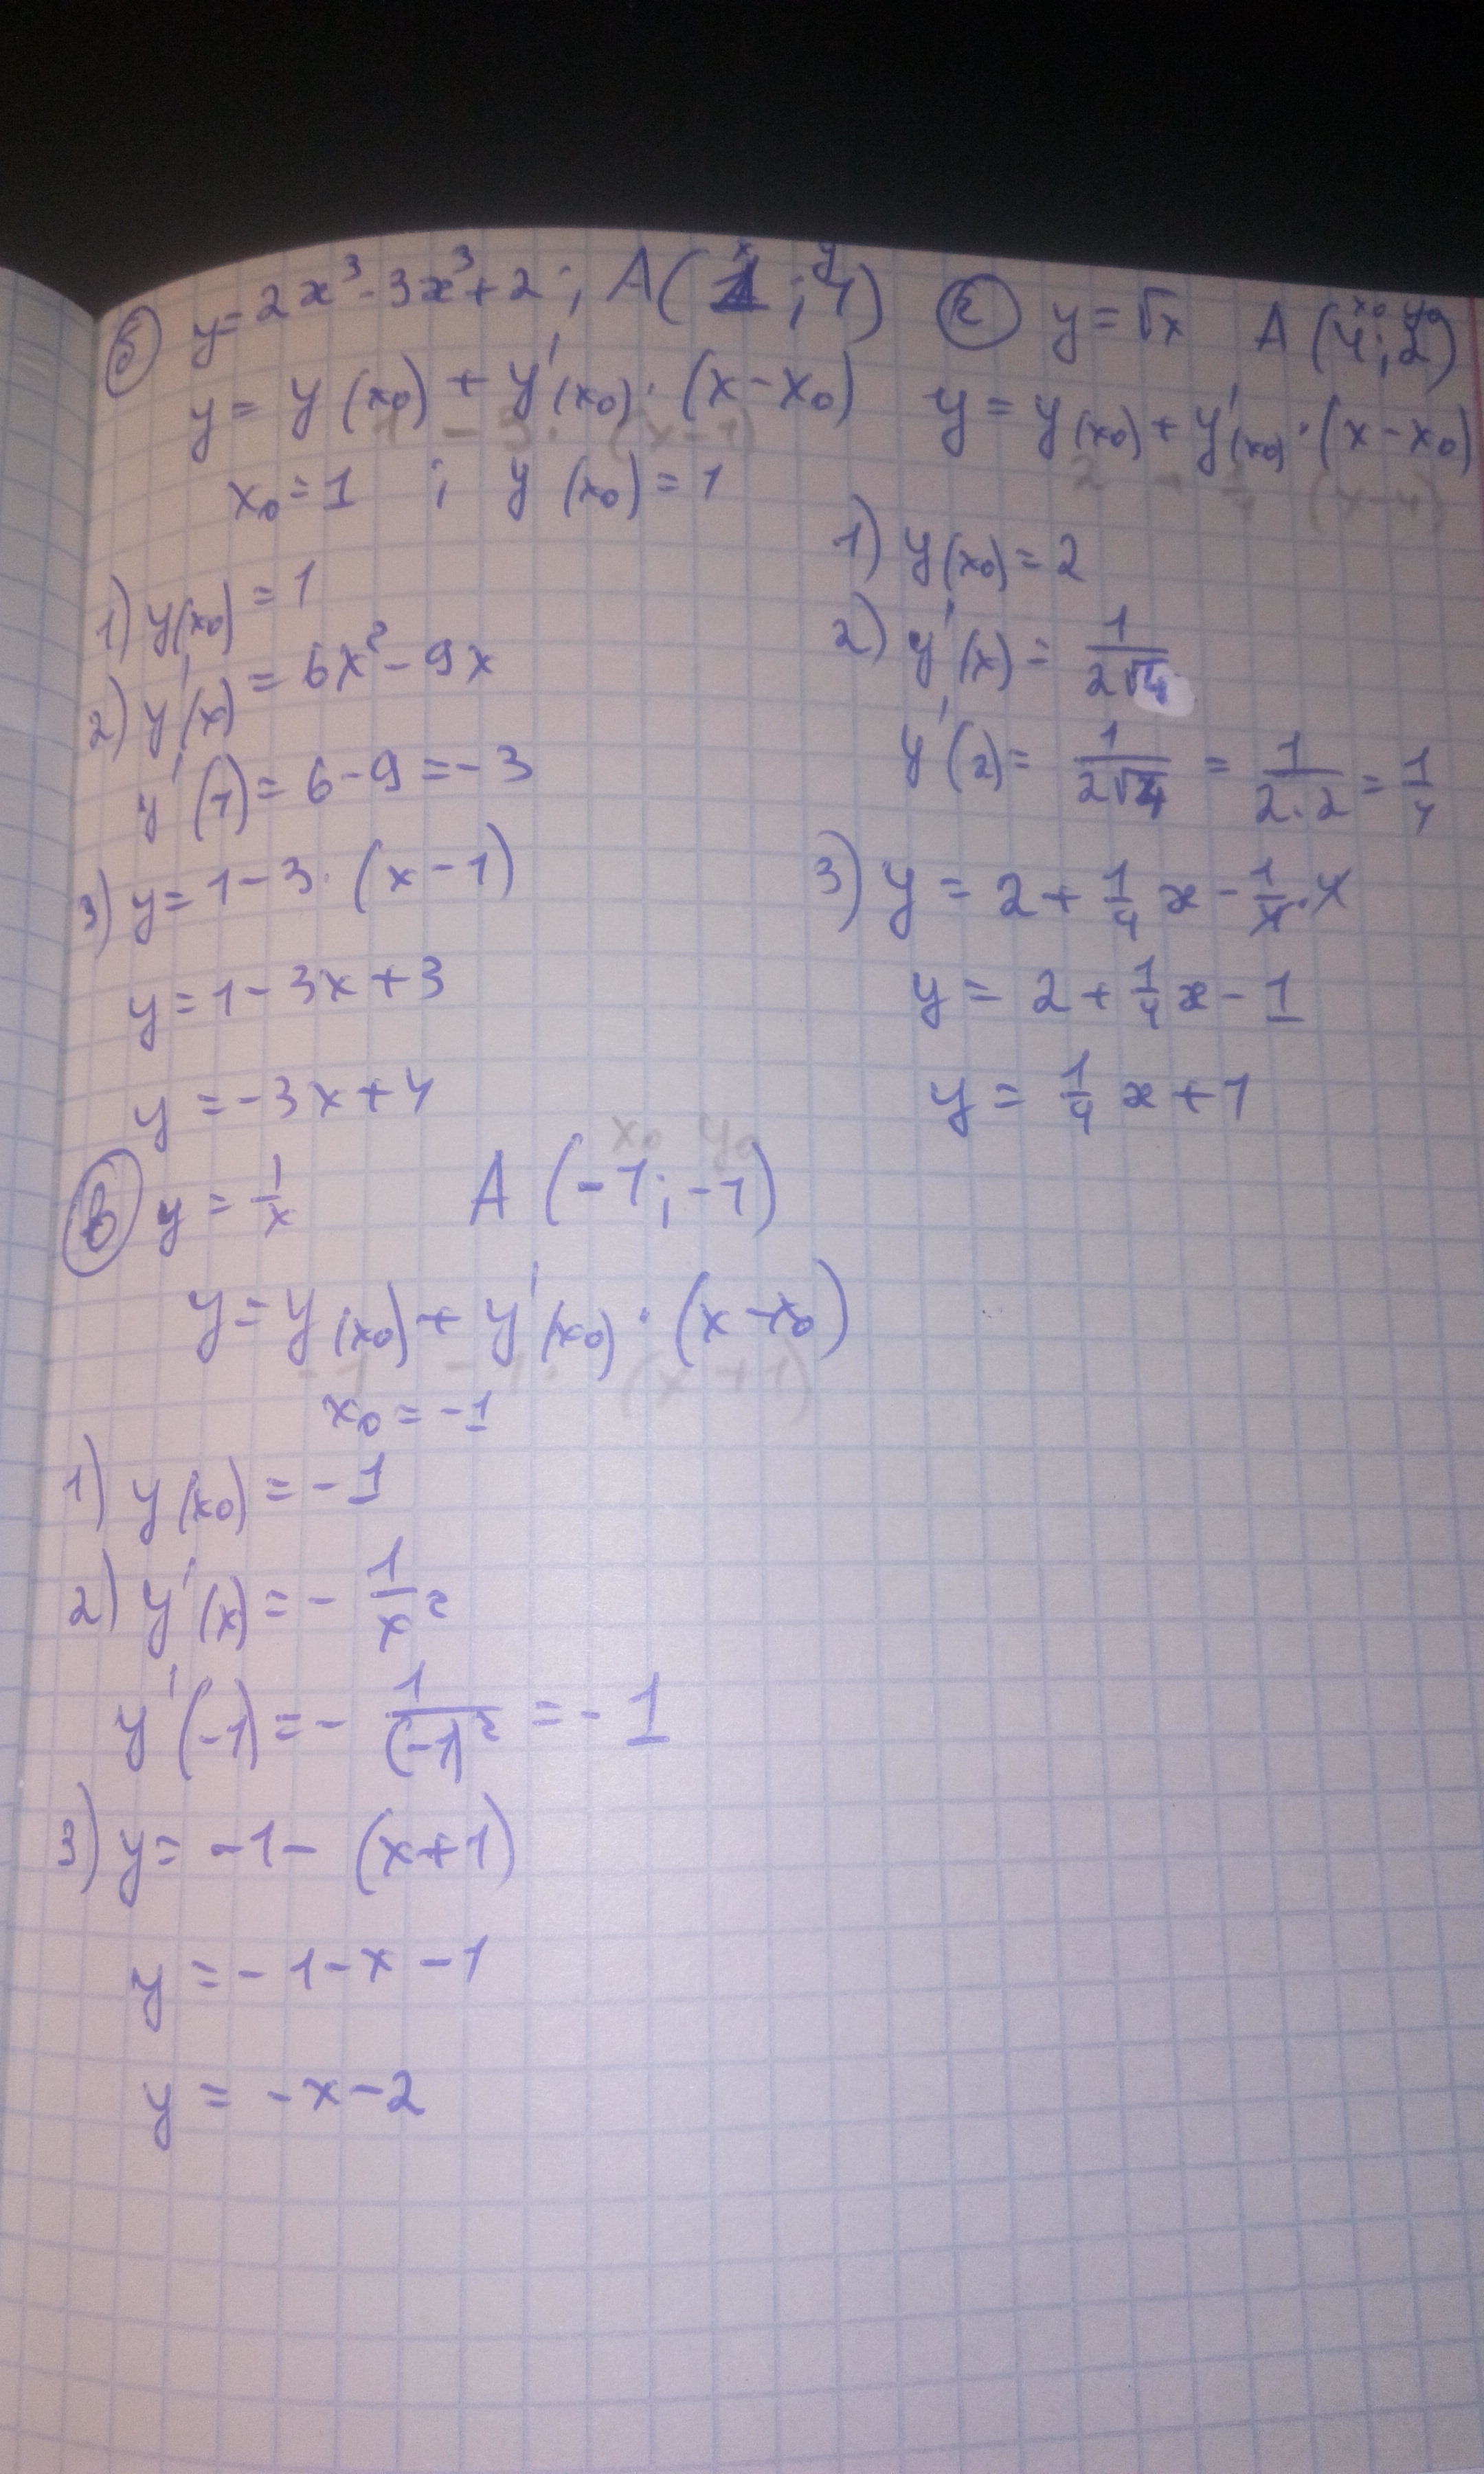 б) y = 2x³ - 3x³ + 2 ; A (1 ; 1)
x y
y = y(x₀) + y'(x₀) · (x - x₀)
1 - 3 · (x - 1)
x₀ = 1 ; y(x₀) = 1
1) y(x₀) = 1
2) y'(x) = 6x² - 9x
y'(1) = 6 - 9 = -3
3) y = 1 - 3 · (x - 1)
y = 1 - 3x + 3
y = -3x + 4
в) y = 1/x A (-1 ; -1)
x₀ y₀
y = y(x₀) + y'(x₀) · (x - x₀)
-1 - 1 · (x + 1)
x₀ = -1
1) y(x₀) = -1
2) y'(x) = - 1/x²
y'(-1) = - 1/(-1)² = -1
3) y = -1 - (x + 1)
y = -1 - x - 1
y = -x - 2
г) y = √x A (4 ; 2)
x₀ y₀
y = y(x₀) + y'(x₀) · (x - x₀)
2 + 1/4 (x - 4)
1) y(x₀) = 2
2) y'(x) = 1/2√4
y'(2) = 1/2√4 = 1/2·2 = 1/4
3) y = 2 + 1/4 x - 1/4 · 4
y = 2 + 1/4 x - 1
y = 1/4 x + 1